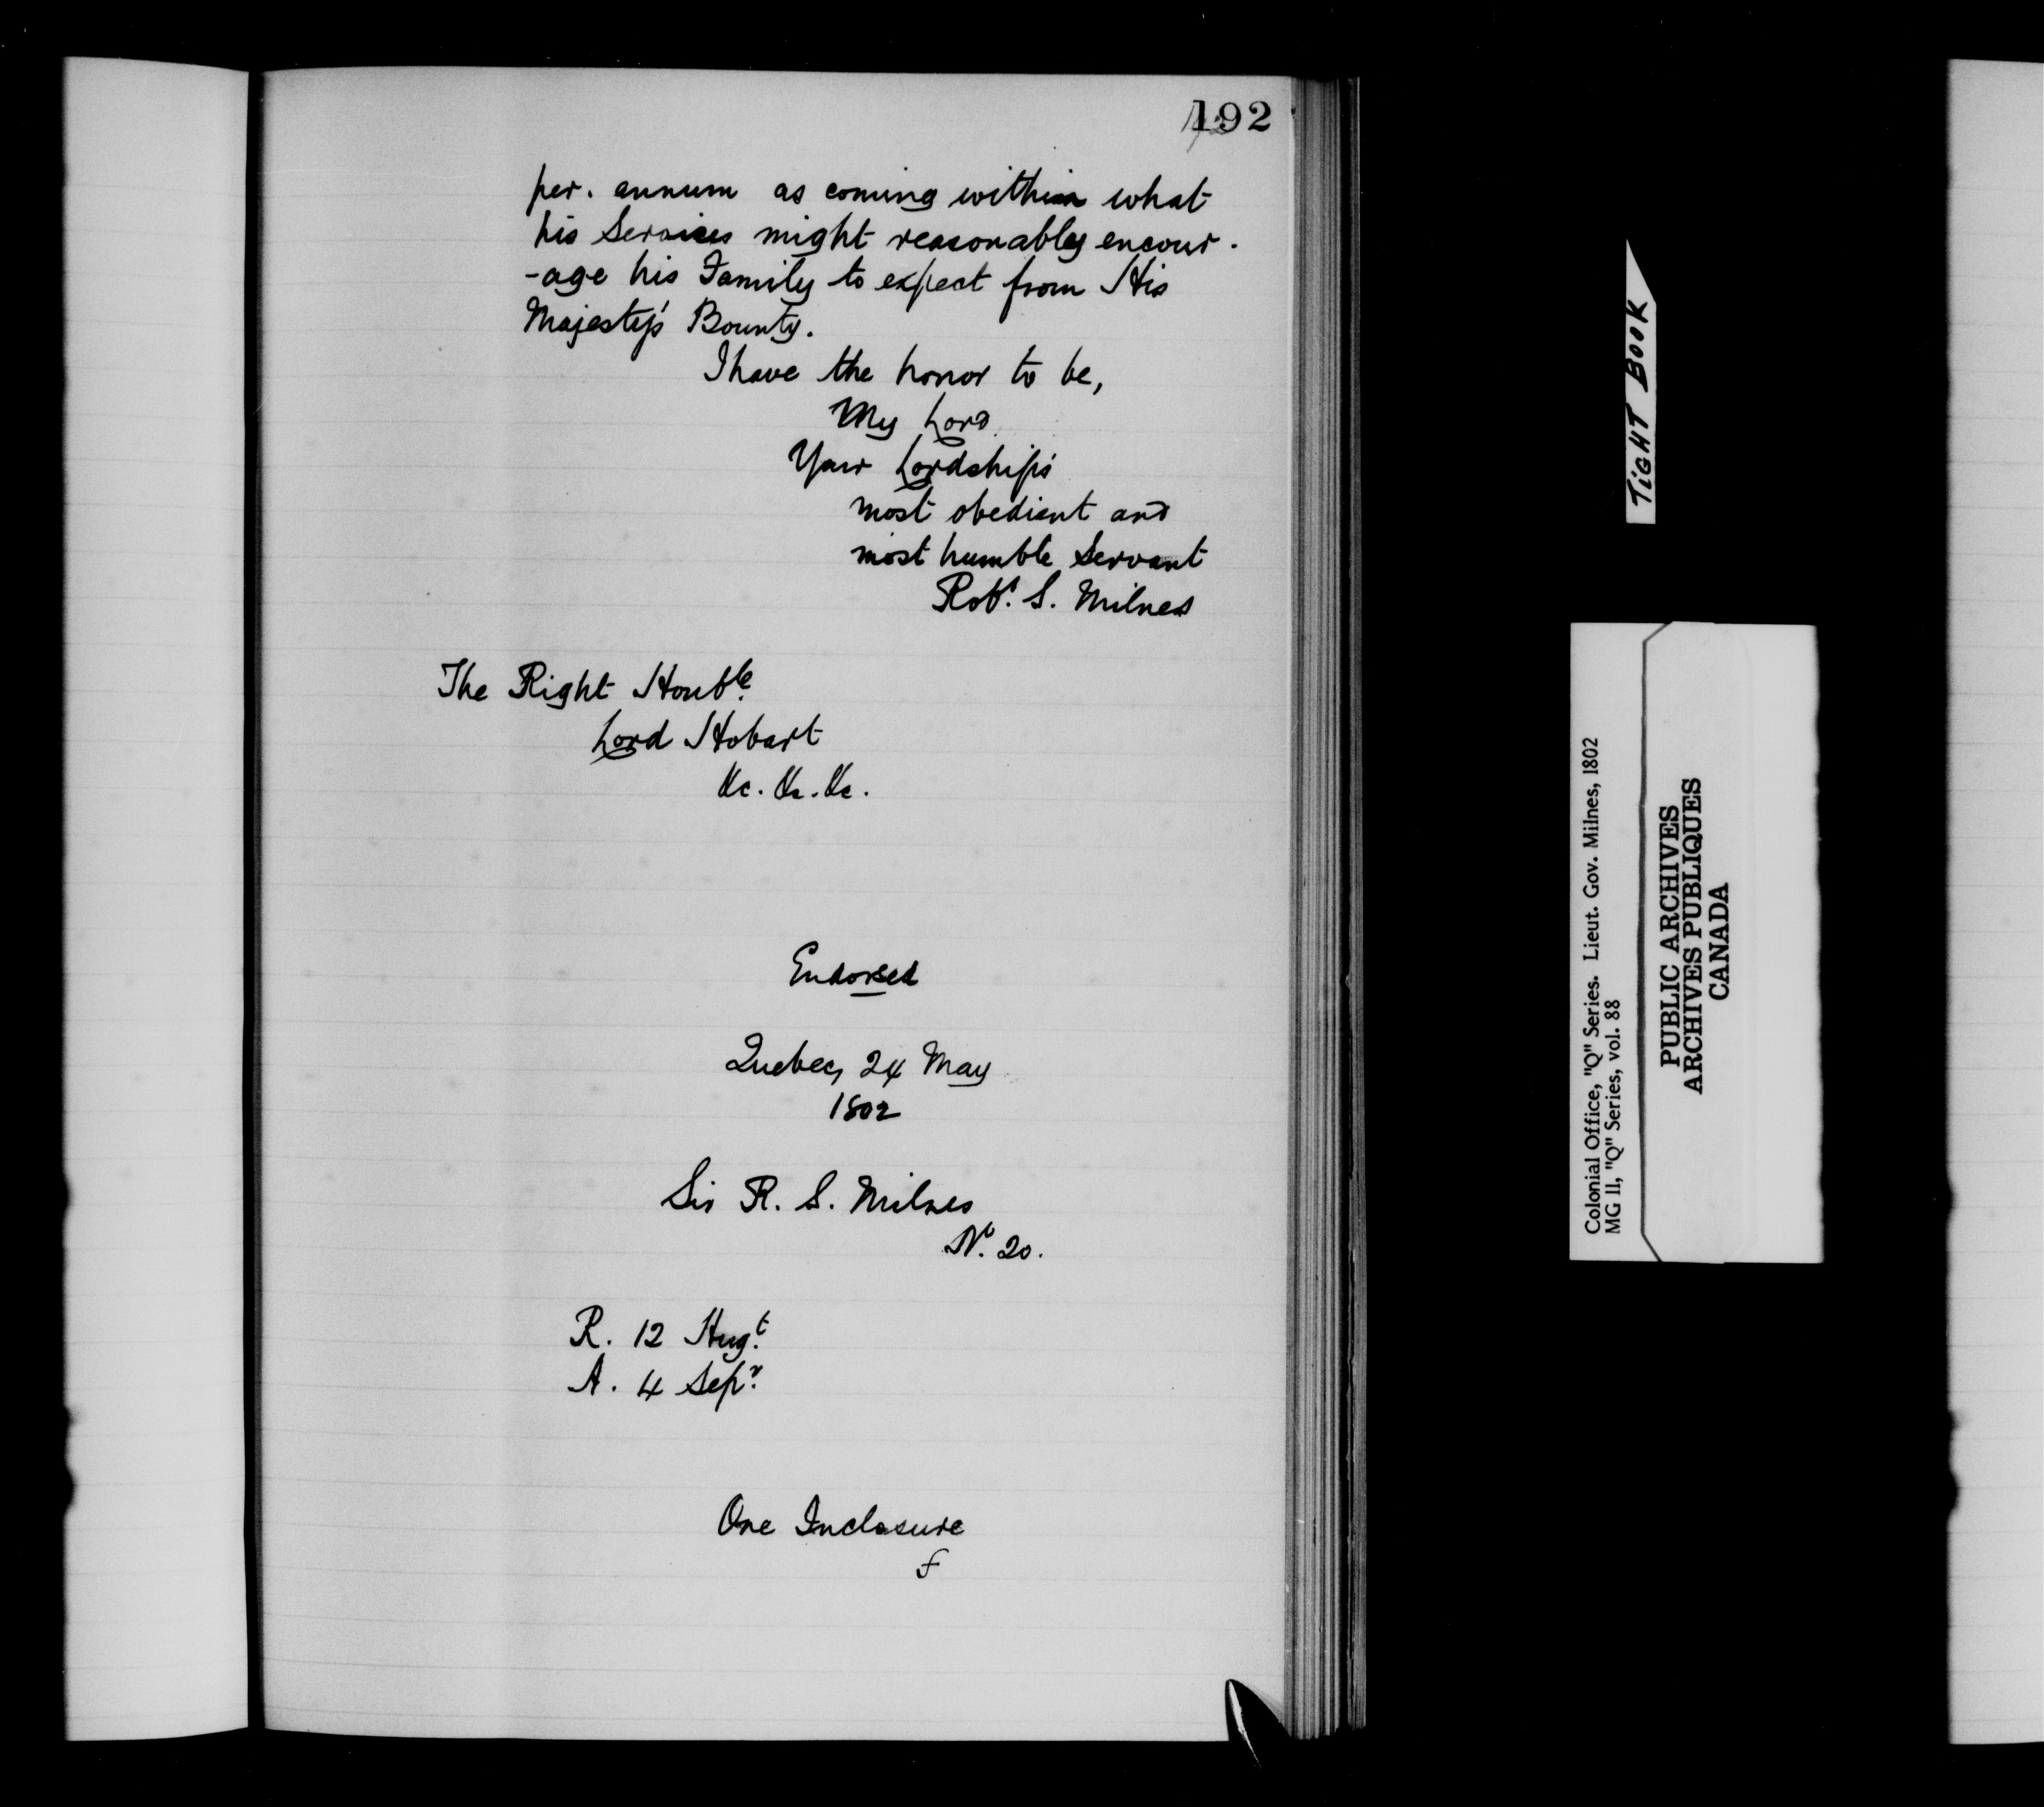 192
per. annum as coming within what
his Services might reasonably encour-
-age his Family to expect from His
Majesty's Bounty.
I have the honor to be,
My Lord
Your Lordship's
most obedient and
most humble Servant
Robt. S. Milnes
The Right Honble.
Lord Hobart
&c. &c. &c.
Endorsed
Quebec, 24 May
1802
Sir R. S. Milnes
No. 20.
R. 12 Augt.
A. 4 Sepr.
One Inclosure
TiGHT BOOK
Colonial Office, "Q" Series. Lieut. Gov. Milnes, 1802
MG 11, "Q" Series, vol. 88
PUBLIC ARCHIVES
ARCHIVES PUBLIQUES
CANADA